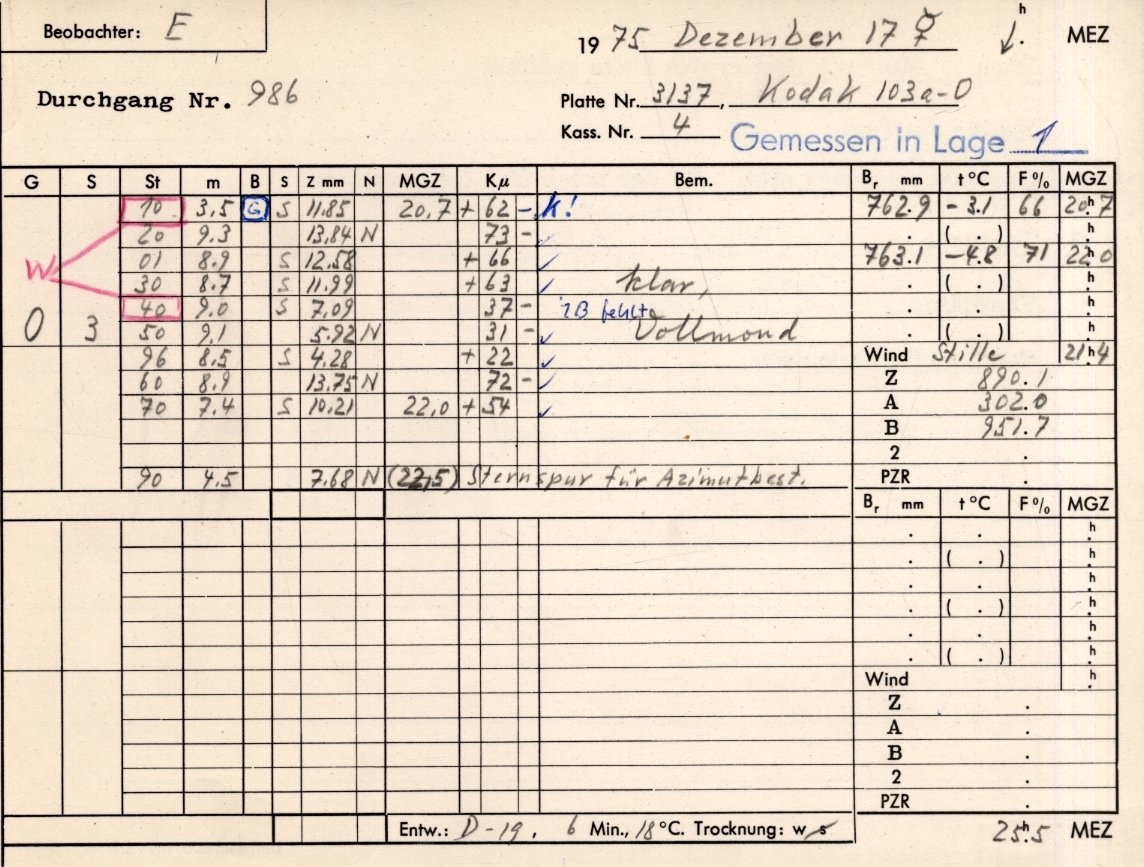 Beobachter: E
19 75 Dezember 17 ☿ h . MEZ
Durchgang Nr. 986
Platte Nr. 3137, Kodak 103a-O
Kass. Nr. 4 Gemessen in Lage 1
G S St m B S Z mm N MGZ Kμ Bem. Br mm t °C F % MGZ
10 3.5 G S 11.85 20,7 + 62 - K! 762.9 - 3.1 66 20h7
20 9.3 13,84 N 73 - . ( . ) h
01 8.9 S 12.58 + 66 ✓ 763.1 -4.8 71 22h0
W 30 8.7 S 11.99 + 63 ✓ klar, . ( . ) h
40 9.0 S 7,09 37 - fehlt . . h
0 3 50 9.1 5.92 N 31 - ✓ Vollmond . ( . ) h
96 8,5 S 4.28 + 22 ✓ Wind Stille 21h4
60 8.9 13.75 N 72 - ✓ Z 890.1
70 7.4 S 10,21 22,0 + 54 ✓ A 302.0
B 951.7
2 .
90 4.5 7.68 N (22,5) Sternspur für Azimutbest. PZR .
Br mm t °C F % MGZ
. . h
. ( . ) h
. . h
. ( . ) h
. . h
. ( . ) h
Wind h
Z .
A .
B .
2 .
PZR .
Entw.: D-19, 6 Min., 18 °C. Trocknung: w s 25h.5 MEZ